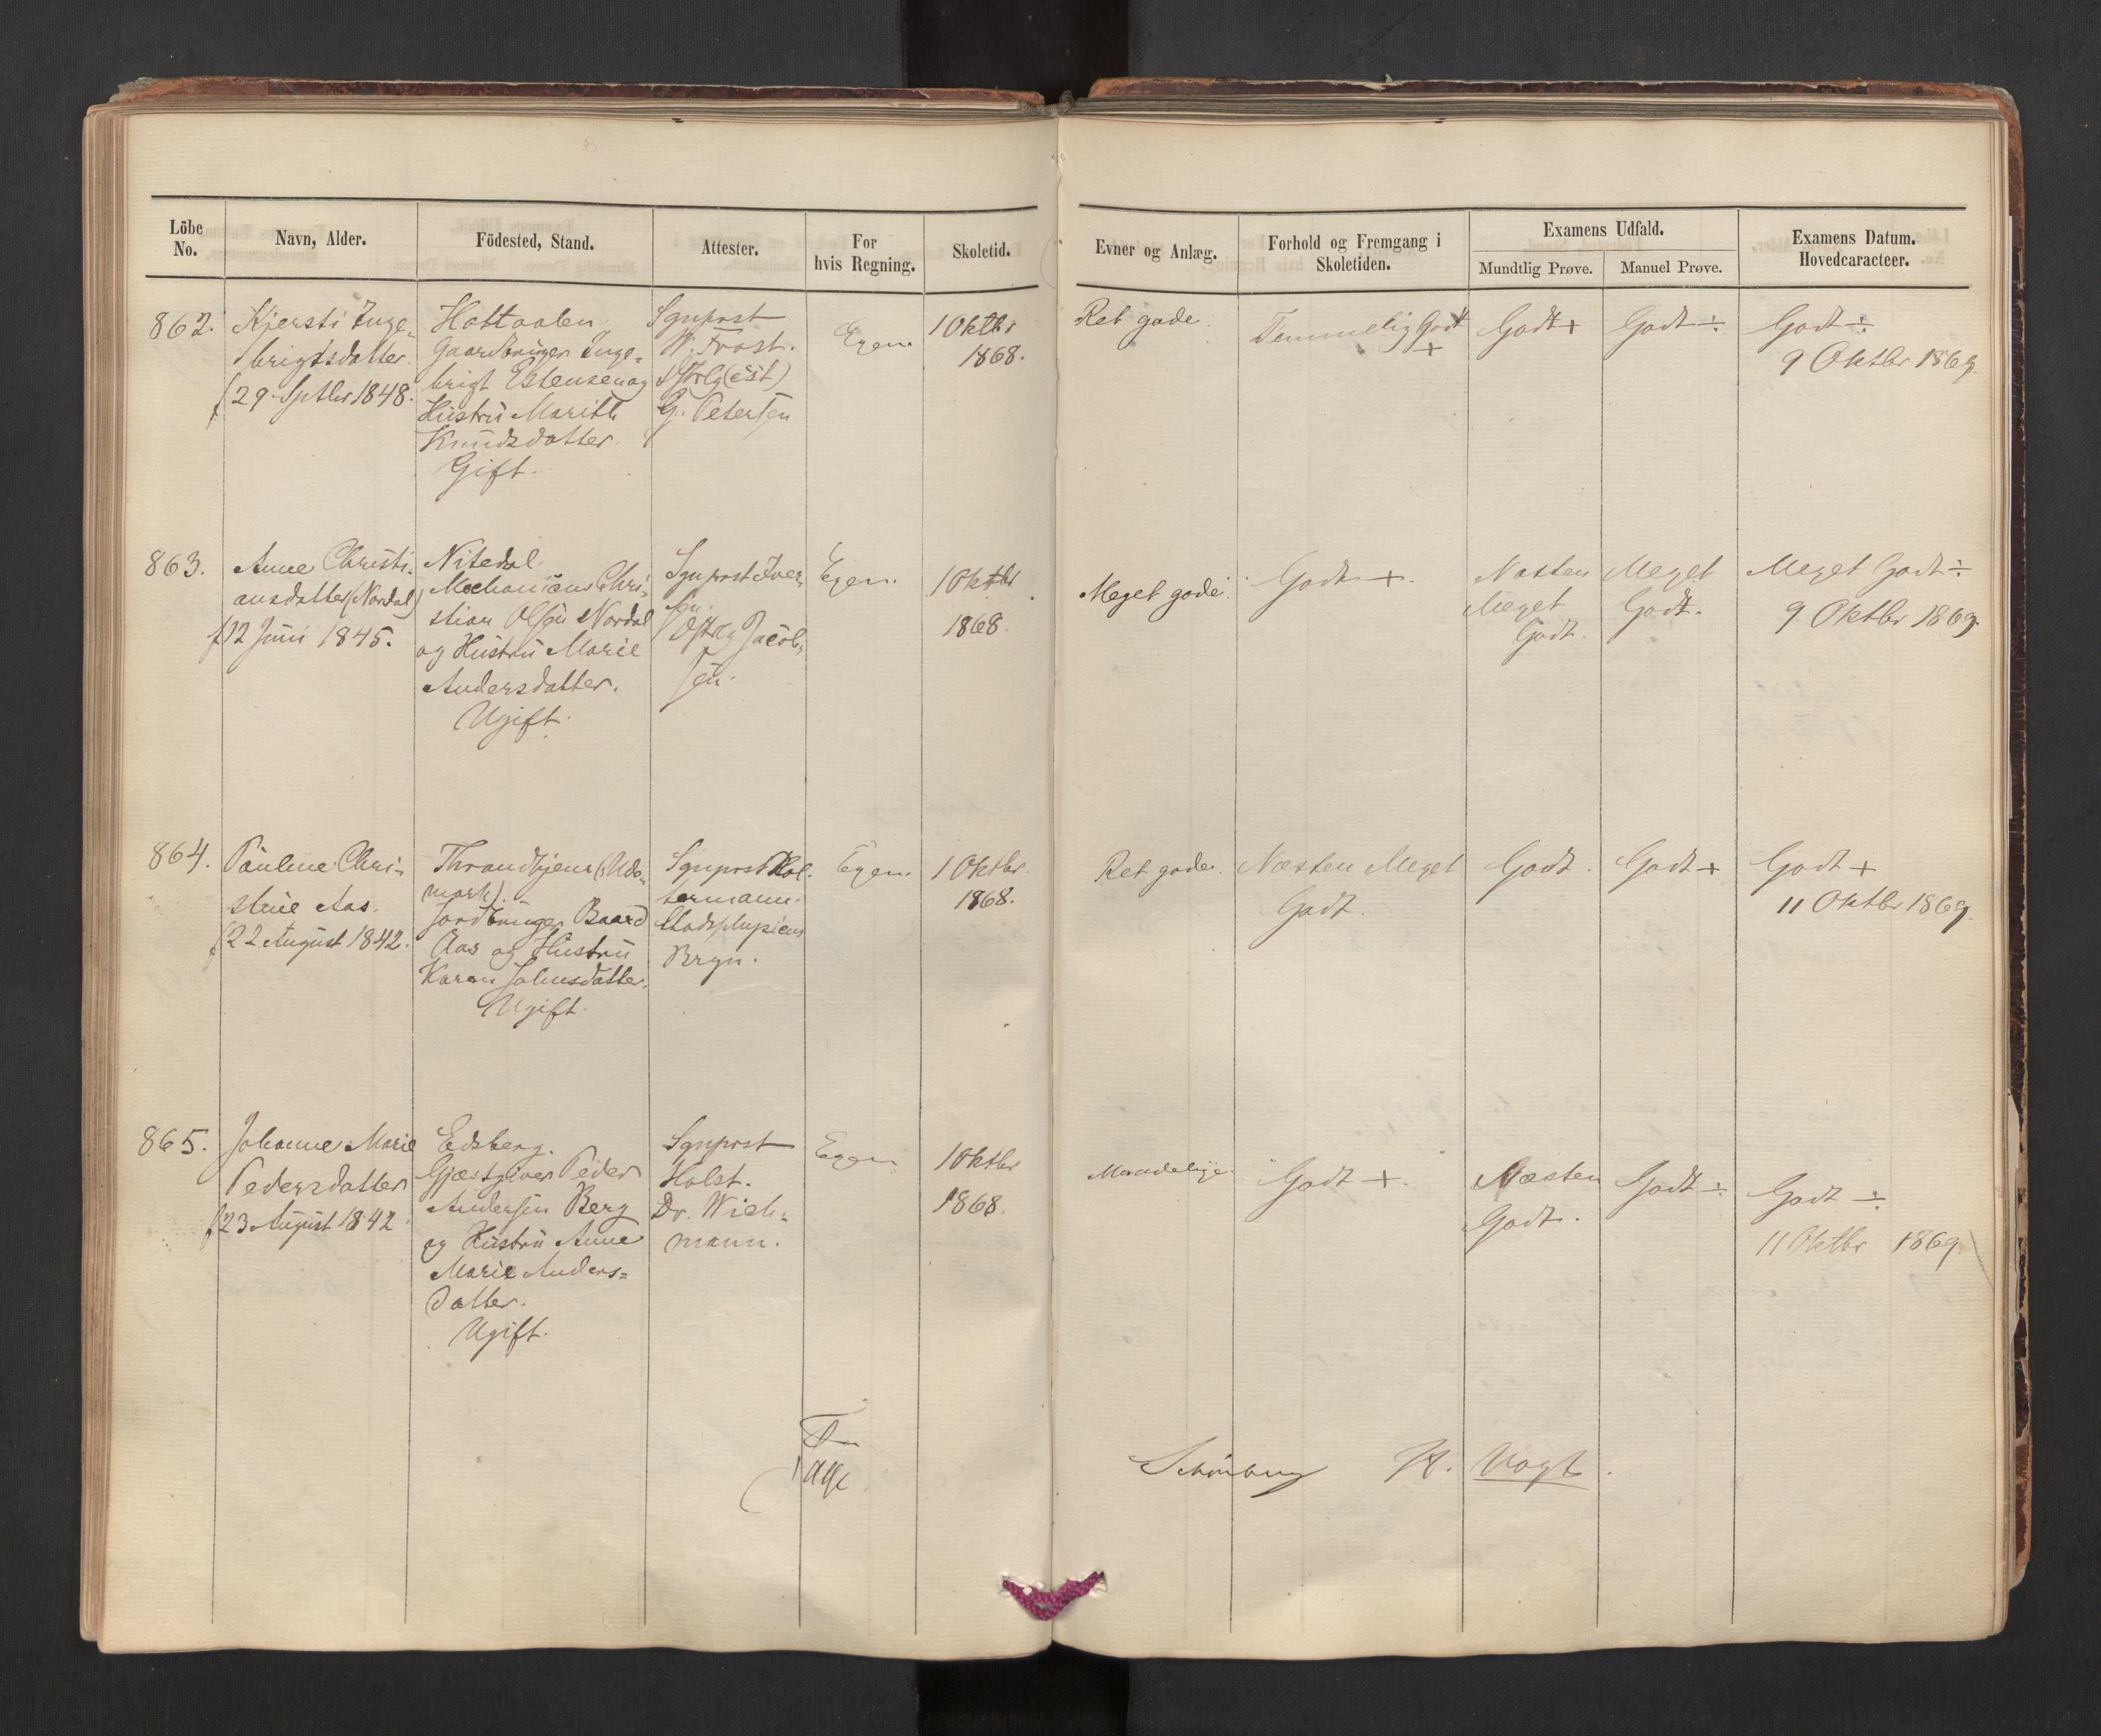 Löbe No.
Navn, Alder.
Födested, Stand.
Attester.
For hvis Regning.
Skoletid.
Evner og Anlæg.
Forhold og Fremgang i Skoletiden.
Examens Udfald.
Mundtlig Prøve.
Manuel Prøve.
Examens Datum. Hovedcaracteer.
862.
Kjersti Inge-
brigtsdatter.
f 29 Septbr 1848.
Holtaalen
Gaardbruger Inge-
brigt Estensen og
Hustru Marith
Knudsdatter.
Gift.
Sgnprst
W. Frost.
G. Petersen
Egen.
1 Oktbr
1868.
Ret gode.
Temmelig Godt
+
Godt +
Godt ÷
Godt ÷
9 Oktbr 1869.
863.
Anne Christi-
ansdatter (Nordal)
f 12 Juni 1845.
Nitedal.
Mechanicus Chri-
stian Olsen Nordal
og Hustru Marie
Andersdatter.
Ugift.
Sgnprst Iver-
sen.
Jacob-
sen.
Egen.
1 Oktbr
1868.
Meget gode.
Godt +.
Næsten
Meget
Godt.
Meget
Godt.
Meget Godt ÷
9 Oktbr 1869.
864.
Pauline Chri-
stine Aas.
f 22 August 1842.
Throndhjem
mark).
Jordbruger Baard
Aas og Hustru
Karen Johnsdatter.
Ugift.
Sgnprst
termann.
Bryn.
Egen.
1 Oktbr
1868.
Ret gode.
Næsten Meget
Godt.
Godt.
Godt +
Godt +
11 Oktbr 1869.
865.
Johanne Marie
Pedersdatter
f 23 August 1842.
Edsberg.
Gjæstgiver Peder
Andersen Berg
og Hustru Anne
Marie Anders-
datter.
Ugift.
Sgnprst
Holst.
Dr. Wich-
mann.
Egen.
1 Oktbr
1868.
Maadelige.
Godt +.
Næsten
Godt.
Godt ÷
Godt ÷
11 Oktbr 1869.
Schönberg
Vogt.